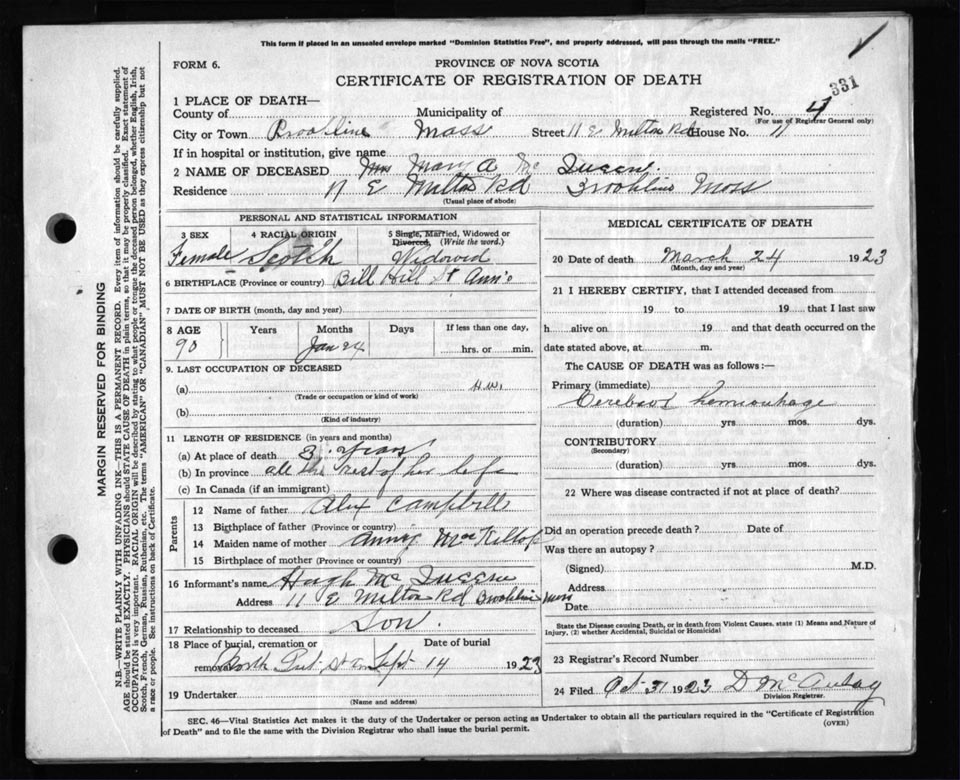 This form if placed in an unsealed envelope marked "Dominion Statistics Free", and properly addressed, will pass through the mails "FREE."
FORM 6.
PROVINCE OF NOVA SCOTIA
CERTIFICATE OF REGISTRATION OF DEATH
331
1 PLACE OF DEATH—
County of
Municipality of
Registered No. 4
(For use of Registrar General only)
City or Town Brookline Mass Street 11 E Milton Rd House No. 11
If in hospital or institution, give name
2 NAME OF DECEASED Mrs Mary A Mc
Residence 11 E Milton Rd Brookline Mass
(Usual place of abode)
PERSONAL AND STATISTICAL INFORMATION
3 SEX
Female
4 RACIAL ORIGIN
Scotch
5 Single, Married, Widowed or
Divorced, (Write the word.)
Widowed
6 BIRTHPLACE (Province or country) Hill St Ann's
7 DATE OF BIRTH (month, day and year)
8 AGE Years Months Days If less than one day,
90 Jan 24 hrs. or min.
9. LAST OCCUPATION OF DECEASED
(a) H.W.
(Trade or occupation or kind of work)
(b)
(Kind of industry)
11 LENGTH OF RESIDENCE (in years and months)
(a) At place of death 3 years
(b) In province all the rest of her life
(c) In Canada (if an immigrant)
Parents
12 Name of father Alex Campbell
13 Birthplace of father (Province or country)
14 Maiden name of mother
15 Birthplace of mother (Province or country)
16 Informant's name Hugh Mc
Address 11 E Milton Rd Brookline Mass
17 Relationship to deceased Son.
18 Place of burial, cremation or Date of burial
removal Sept 14 1923
19 Undertaker
(Name and address)
MEDICAL CERTIFICATE OF DEATH
20 Date of death March 24 1923
(Month, day and year)
21 I HEREBY CERTIFY, that I attended deceased from
19 to 19 that I last saw
h alive on 19 and that death occurred on the
date stated above, at m.
The CAUSE OF DEATH was as follows:—
Primary (immediate) ?
hemorrhage
(duration) yrs mos. dys.
CONTRIBUTORY
(Secondary)
(duration) yrs. mos. dys.
22 Where was disease contracted if not at place of death?
Did an operation precede death? Date of
Was there an autopsy?
(Signed) M.D.
Address
Date
State the Disease causing Death, or in death from Violent Causes, state (1) Means and Nature of
Injury, (2) whether Accidental, Suicidal or Homicidal
23 Registrar's Record Number
24 Filed Oct 31 1923
Division Registrar.
SEC. 46—Vital Statistics Act makes it the duty of the Undertaker or person acting as Undertaker to obtain all the particulars required in the "Certificate of Registration
of Death" and to file the same with the Division Registrar who shall issue the burial permit.
(OVER)
MARGIN RESERVED FOR BINDING
N.B. WRITE PLAINLY WITH UNFADING INK—THIS IS A PERMANENT RECORD. Every item of information should be carefully supplied.
AGE should be stated EXACTLY. PHYSICIANS should STATE CAUSE OF DEATH in plain terms, so that it may be properly classified. Exact statement of
OCCUPATION is very important. RACIAL ORIGIN will be described by stating to what people or tongue the deceased person belonged, whether English, Irish,
Scotch, French, German, Russian, Ruthenian, etc. The terms "AMERICAN" OR "CANADIAN" MUST NOT BE USED as they express citizenship but not
a race or people. See instructions on back of Certificate.